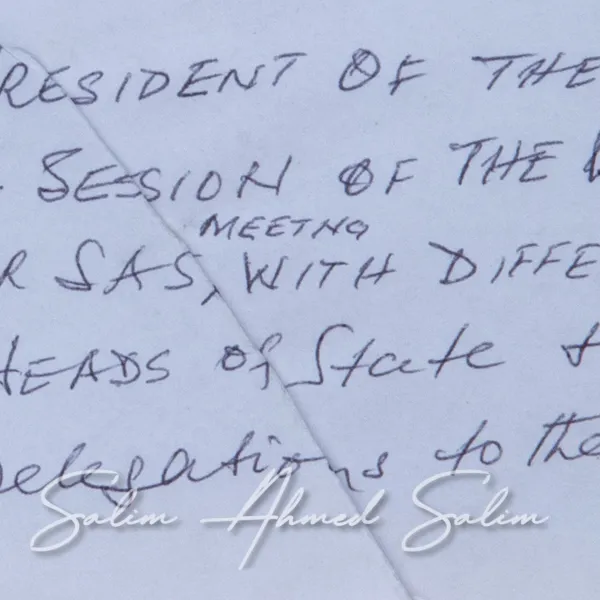 RESIDENT OF THE
SESSION OF THE
MEETNG
R SAS, WITH DIFFE
HEADS of State
Delegations to the
Salim Ahmed Salim